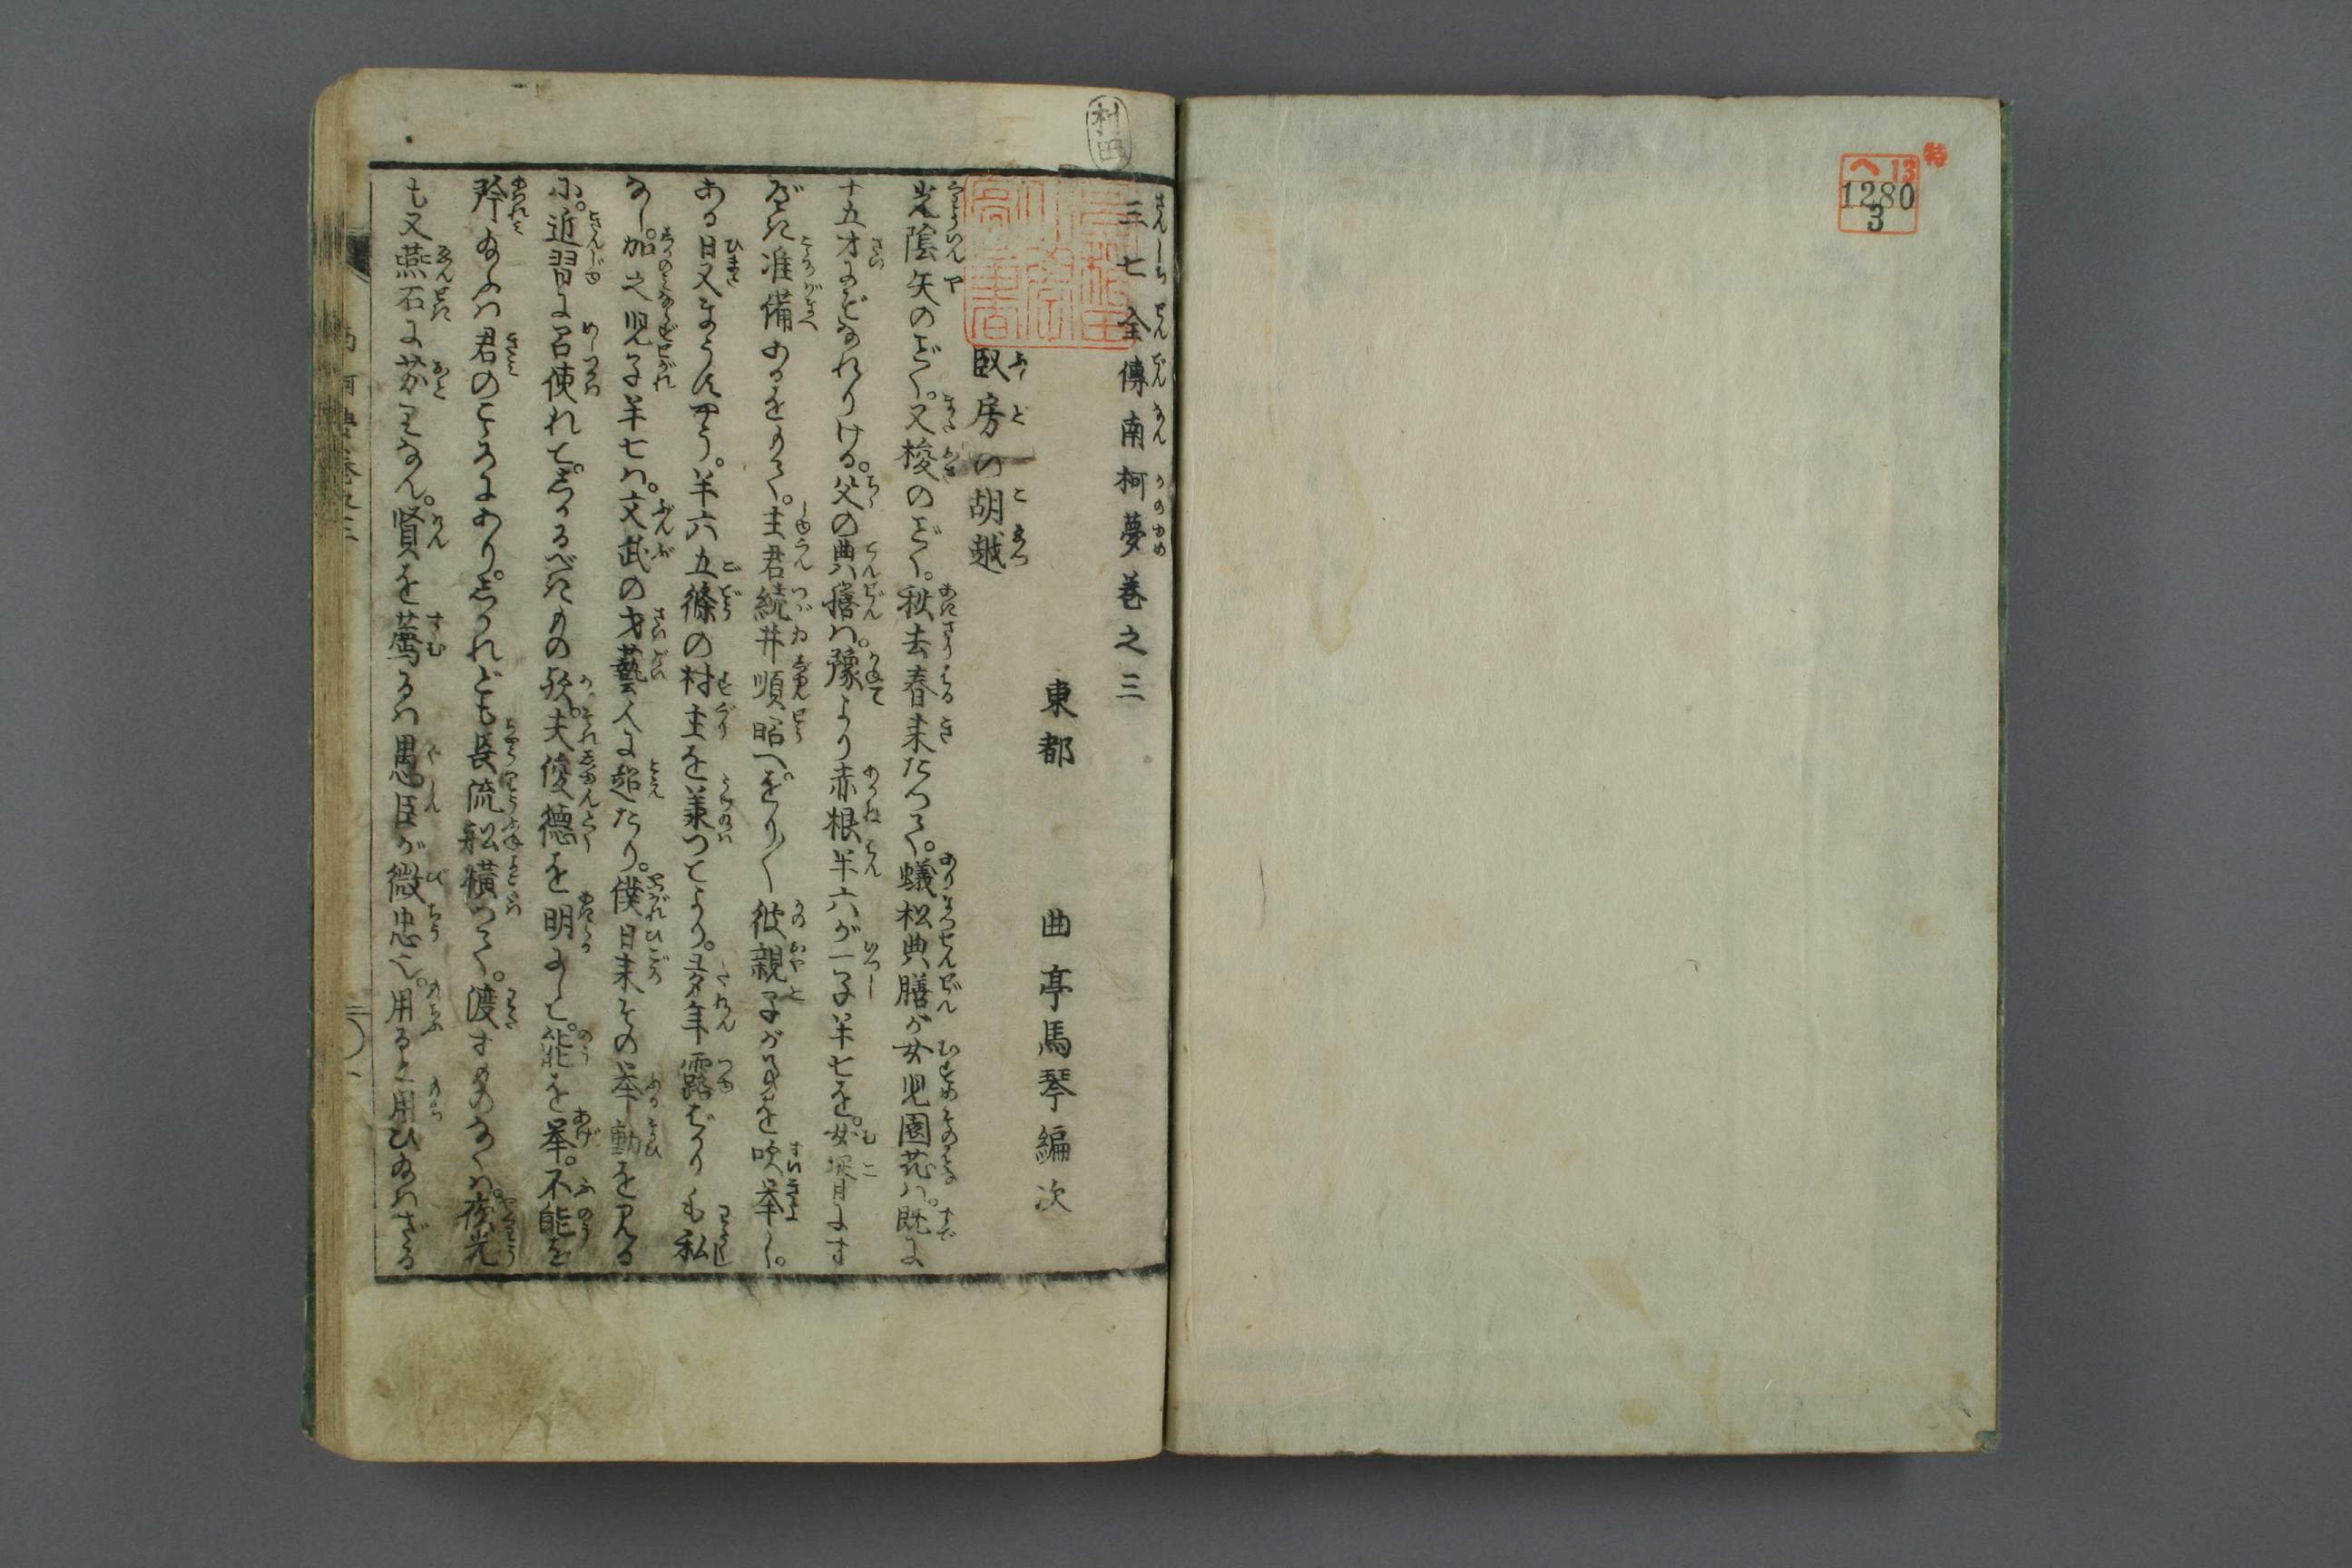 特
ヘ13
1280
3
村田
三七全傳南柯夢巻之三
東都　曲亭馬琴編次
臥房の胡越
光陰矢のごとく。又梭のごとく。秋去春来たつて。蟻松典膳が女児園花ハ。既に
十五才にぞなれりける。父の典膳ハ。豫より赤根半六が一子半七を。女婿にす
べき准備あるをもて。主君続井順昭へ。をり／＼彼親子がうへを吹挙し。
ある日又まうすやう。半六五條の村主を兼つとより。多年露ばかりも私
なし。加之児子半七ハ。文武の才藝人に超たり。僕日来その挙動を見る
に。近習に召使れて。しかるべきもの歟。夫俊徳を明にして。能を挙。不能を
矜給ふハ君のこゝろにあり。しかれども長流舩横つて。渡すものなくハ。夜光
も又燕石に劣りなん。賢を薦るハ愚臣が微忠也。用ると用ひ給ハざる